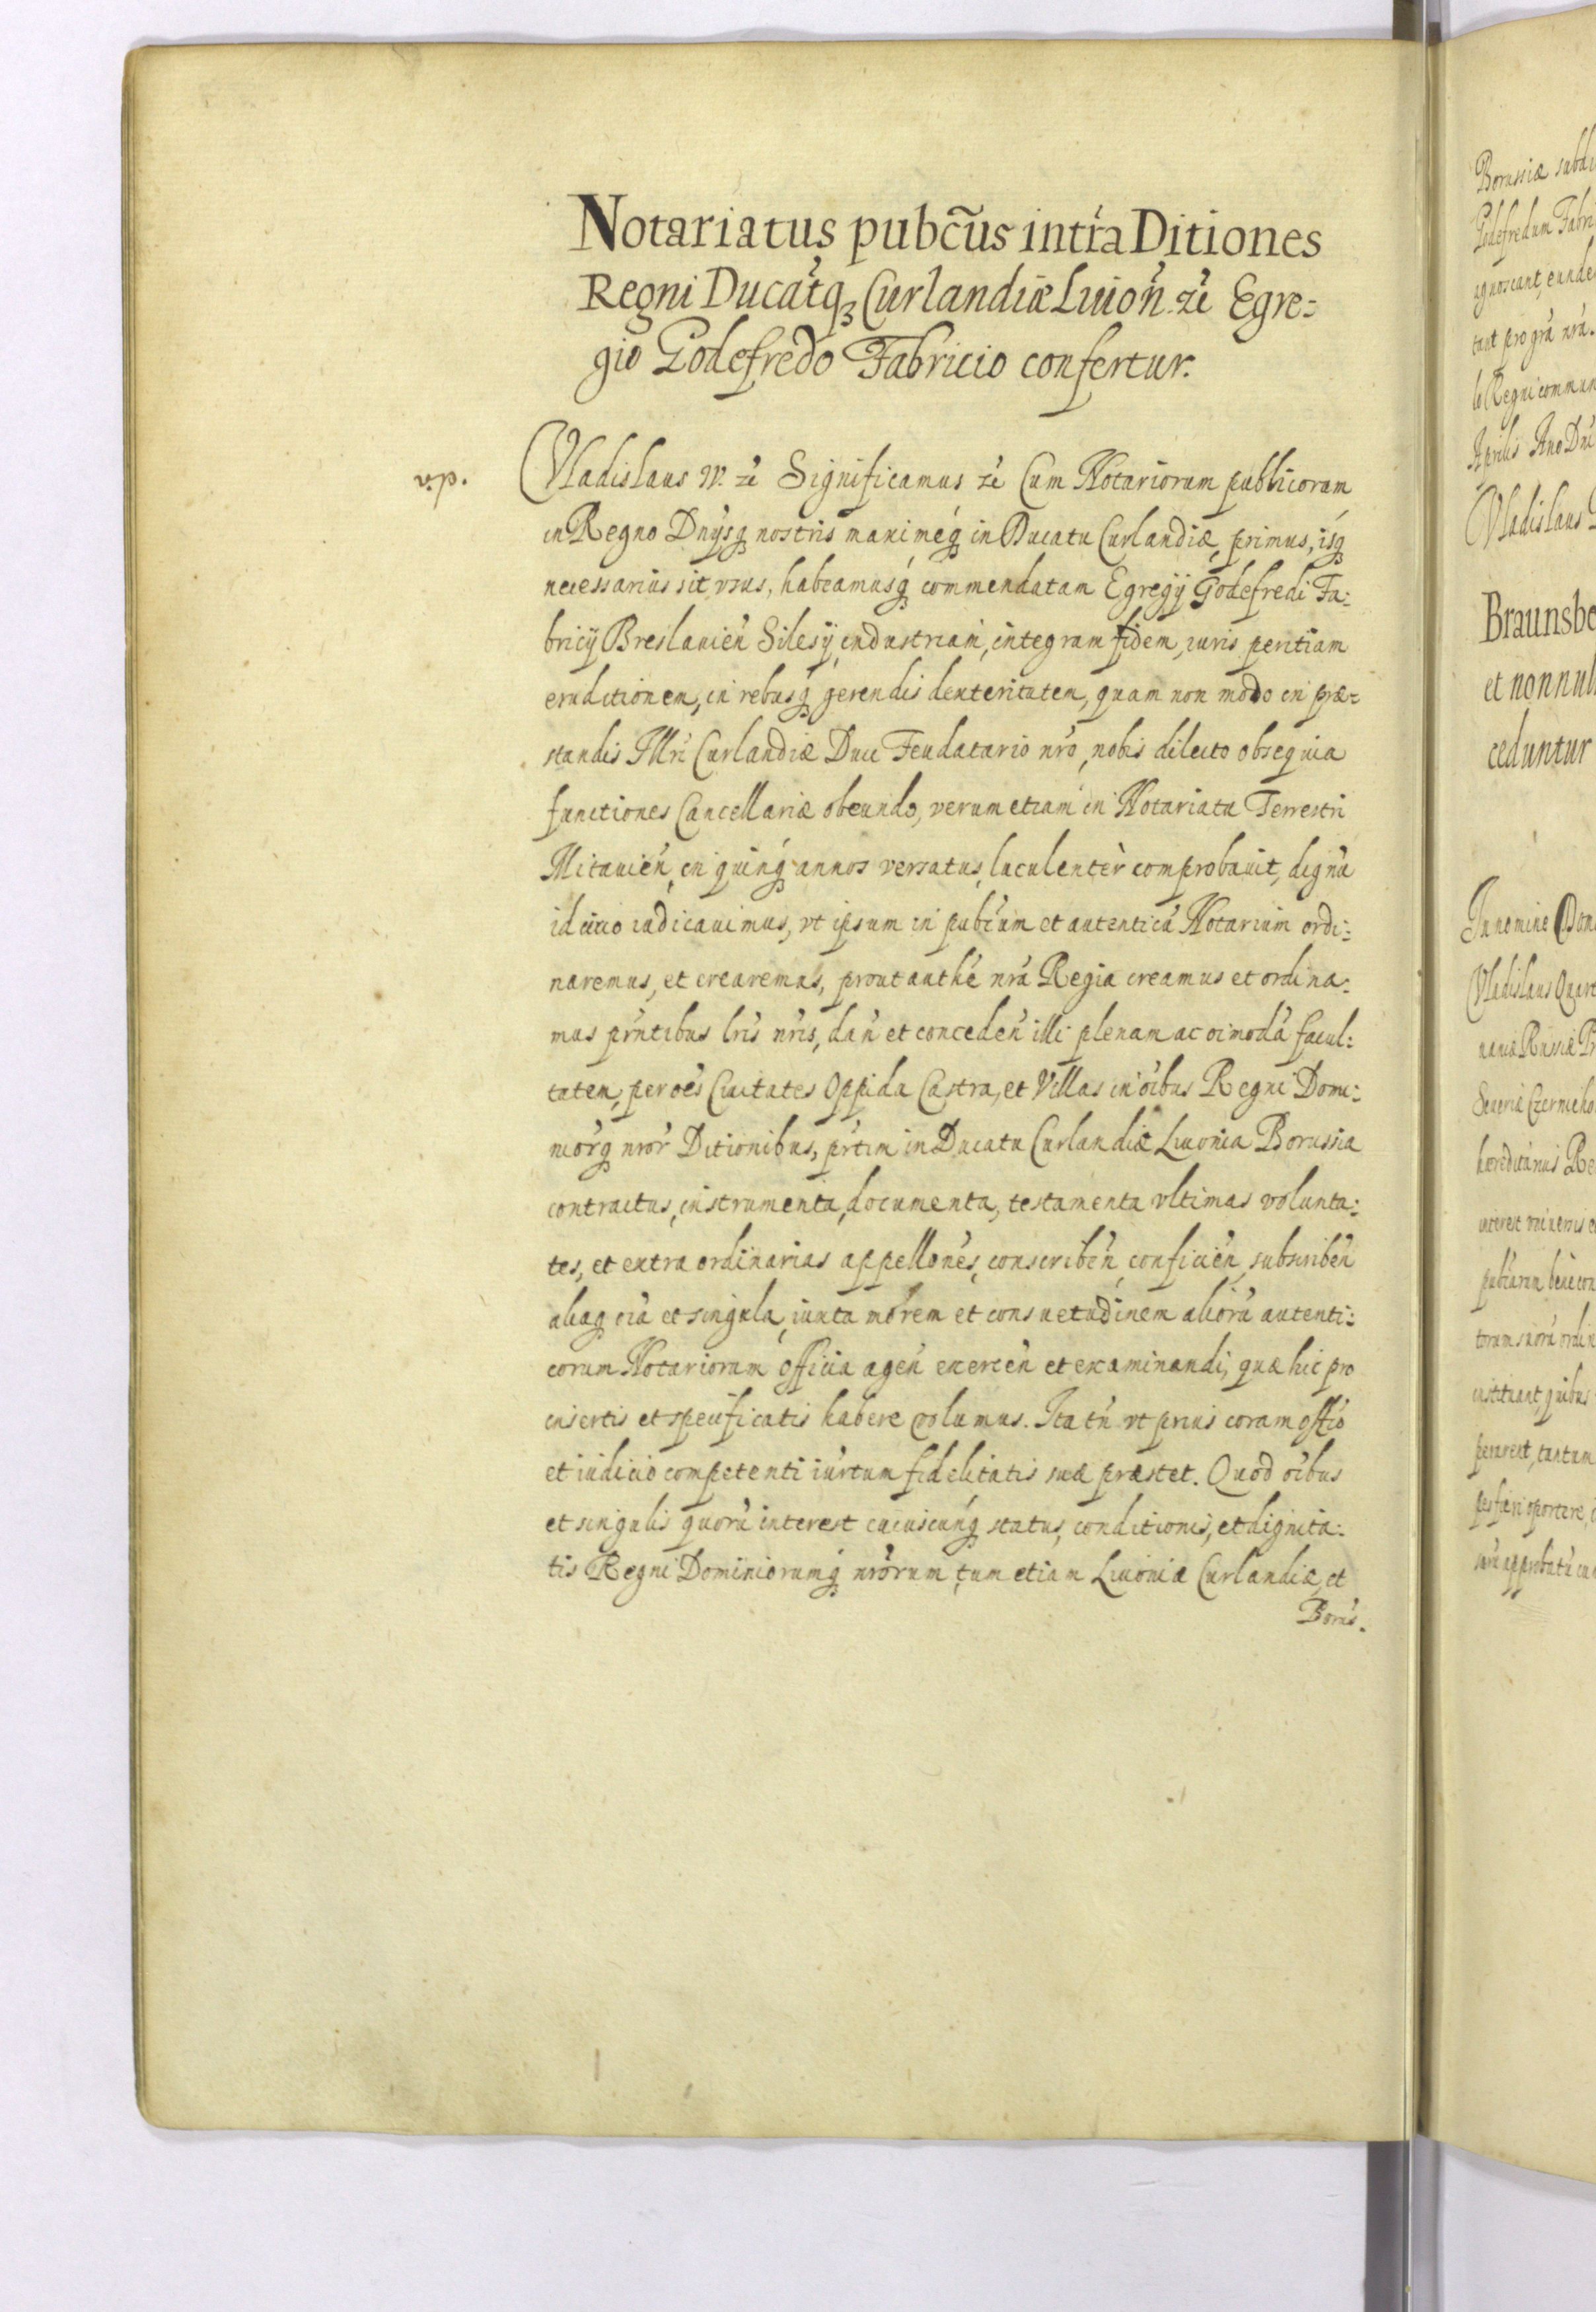 Notariatus pubc̃us intŕa Ditiones
Regni Ducat́q₃ Curlandiæ Livoń. zĕ Egre=
gio Godefredo Fabricio confertur.
Vladislaus IV. zĕ Significamus zĕ Cum Notariorum publicorum
in Regno Dnÿsq₃ nostris maximéq₃ in Ducatu Curlandiæ, primus, isq₃
necessarius sit vsus, habeamusq₃ commendatam Egregÿ Godefredi Fa:
bricÿ Breslavień Silesÿ, industriam, integram fidem, iuris peritiam
eruditionem, in rebusq₃ gerendis dexteritatem, quam non modo in præ=
standis Illri Curlandiæ Duci Feudatario nŕo, nobis dilecto obsequia
functiones Cancellariæ obeundo, verum etiam in Notariatu Terrestri
Mitavień, in quinq₃ annos versatus, luculentèr comprobavit, dignŭ
id circo iudicavimus, vt ipsum in pubĕum et autenticŭ Notarium ordi:
naremus, et crearemus, prout authĕ nŕa Regia creamus et ordina:
mus pŕntibus lŕis nŕis, dań et concedeń illi plenam ac oimodă facul:
tatem, per oēs Civitates Oppida Castra, et Villas in oibus Regni Domi:
niorq₃ nror Ditionibus, pŕtim in Ducatu Curlandiæ Livonia Borussia
contractus, instrumenta, documenta, testamenta vltimas volunta:
tes, et extra ordinarias appellones, conscribeń, conficień, subscribeń
aliaq₃ oia et singula, iuxta morem et consuetudinem aliorŭ autenti:
corum Notariorum officia ageń exerceń et examinandi, quæ hic pro
insertis et specificatis habere volumus. Ita tń vt prius coram offio
et iudicio competenti iurtum fidelitatis suæ præstet. Quod oibus
et singulis quorŭ interest cuiuscunq₃ status, conditionis, et dignita:
tis Regni Dominiorumq₃ nrorum, tum etiam Livoniæ Curlandiæ, et
Borus.
Borussiæ
Godefredum
agnoscant,
tant pro gŕa nŕa.
Regni
Aprilis Ano
Vladislaus
Braunsbe
et nonnul
ceduntur
In nomine
Vladislaus
Russiæ
Severiæ
hæreditarius
interest
tantum
oportere,